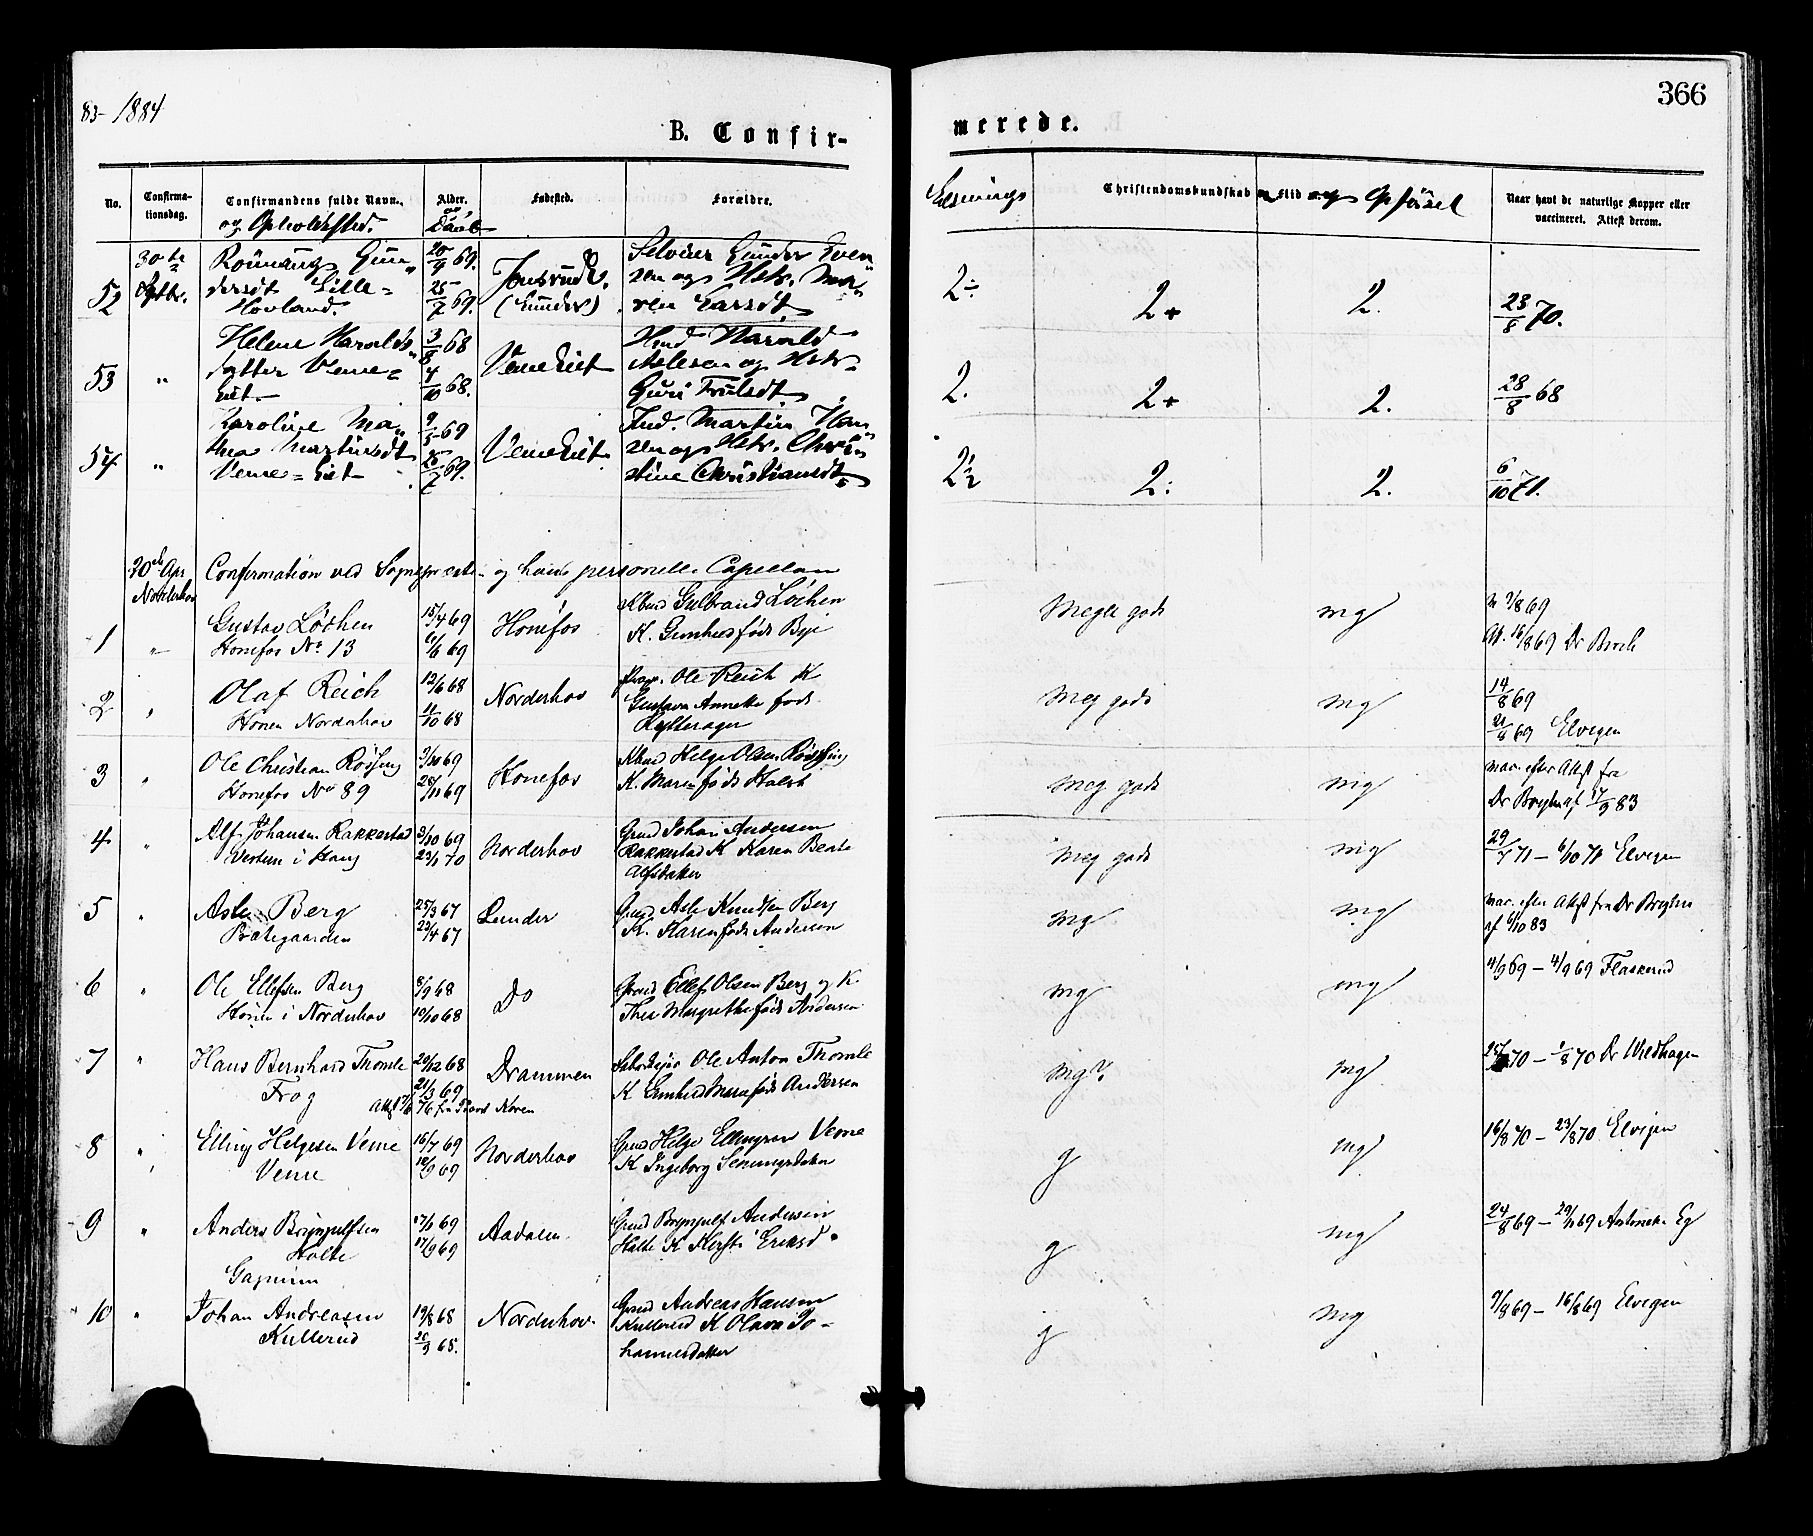 83- 1884
366
B. Confir-
merede.
No.
Confirma-
tionsdag.
Confirmandens fulde Navn.
og Opholdssted.
Alder.
og Daab
Fødested.
Forældre.
Læsnings
Christendomskundskab
Flid og Opførsel
Naar havt de naturlige Kopper eller
vaccineret. Attest derom.
52
30te
Septbr.
Gun-
dersdt Lille-
Hovland.
20/4 69.
25/7 69.
(Lunder)
Gunder Even-
sen og Hstr. Ma-
ren Larsdt.
2÷
2+
2.
23/8 70.
53
"
Helene Haralds-
datter Veme-
Eiet.
3/8 68
4/10 68.
Veme Eiet
Hmd Harald
Aslesen og Hstr
Guri Trulsdt.
2.
2+
2.
28/8 68
54
"
Karoline Ma-
thea Martinsdt
Veme-Eiet
9/5 69
25/7 69.
Veme Eiet
Ind. Martin Han-
sen og Hstr. Chri-
stine Christiansdt.
2½
2:
2.
6/10 71.
30te Apr
Norderhov
Confirmation ved Sognepræsten og hans personelle Capellan
1
"
Gustav Løchen
Hønefos No 13
15/4 69
6/6 69
Hønefos
Kbmd Gulbrand Løchen
K. Gunhild født Bye
Meget godt
mg
n 7/8 69
Att. 16/8 69 Dr Broch
2
"
Olaf Reich
Hønen Norderhov
12/6 68
11/10 68
Norderhov
Ole Reich K
Gustava Annette født
Meg godt
mg
14/8 69
21/8 69 Elvegen
3
"
Ole Christian Røssing
Hønefos No 89
3/10 69
28/11 69
Hønefos
Kbmd Helge Olsen Røssing
K. Maren født Holst
Meg godt
mg
vac. efter Attest fra
Dr Bryhn af 17/9 83
4
"
Alf Johansen Rakkestad
Vestern i Haug
3/10 69
23/1 70
Norderhov
Grmd Johan Andersen
Rakkestad K Karen Beate
Alfsdatter
Meg godt
mg
29/7 71 – 6/10 71 Elvegen
5
"
Asle Berg
Prætegaarden
25/3 67
22/4 67
Lunder
Grmd. Asle Knudsen Berg
K. Karen født Andersen
mg
mg
vac. efter Attest fra Dr Bryhn
af 6/10 83
6
"
Ole Ellefsen Berg
Hønen i Norderhov
8/9 68
10/10 68
Do
Grmd Ellef Olsen Berg og K
Thea Margrethe født Andersen
mg
mg
4/9 69 – 4/9 69 Flaskerud
7
"
Hans Bernhard Thomle
Frog
20/12 68
21/3 69
Drammen
Ole Anton Thomle
K Gunhild Maria født Andersen
mg
mg
70 – 1/8 70 Dr Wildhagen
8
"
Elling Helgesen Veme
Veme
16/7 69
12/9 69
Norderhov
Grmd Helge Ellingsen Veme
K Ingeborg Semmingsdatter
g
mg
16/8 70 – 23/8 70 Elvegen
9
"
Anders Brynjulfsen
Holte
Gagnum
17/1 69
17/9 69
Aadalen
Grmd Brynjulf Andersen
Holte K Kjersti Eriksd
g
mg
24/8 69 – 29/11 69 Eg
10
"
Johan Andreasen
Kullerud
19/8 68
20/9 68.
Norderhov.
Grmd Andreas Hansen
Kullerud K Olava Jo-
hannesdatter
g
mg
9/8 69 – 16/8 69 Elvegen